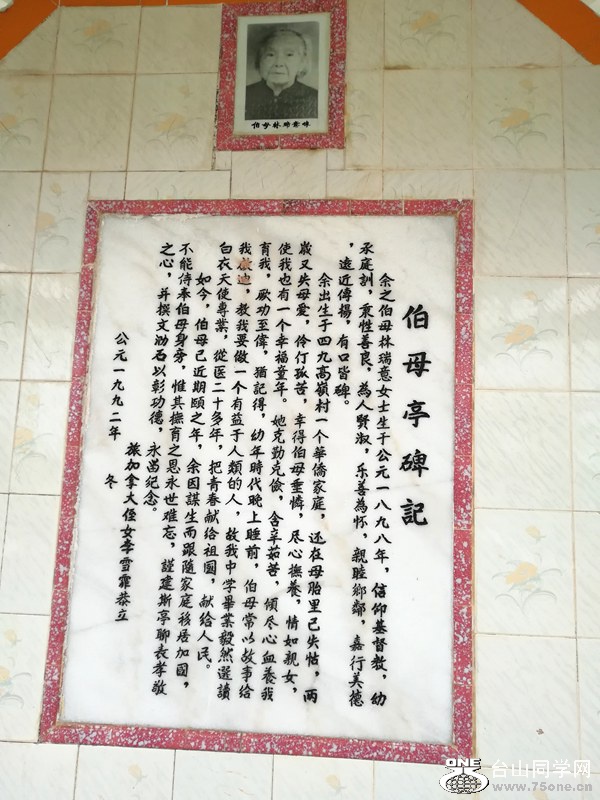 伯母林瑞意婶
伯母亭碑記
余之伯母林瑞意女士生于公元一八九八年，信仰基督教，幼
承庭訓，秉性善良，為人賢淑，乐善為怀，親睦鄉鄰，嘉行美德
，遠近傳揚，有口皆碑。
余出生于四九高嶺村一个華僑家庭，还在母胎里已失怙，两
歲又失母爱，伶仃孤苦，幸得伯母垂憐，尽心撫养，情如親女，
使我也有一个幸福童年。她克勤克儉，含辛茹苦，傾尽心血養我
育我，厥功至偉，猶記得，幼年時代晚上睡前，伯母常以故事给
我啟迪，教我要做一个有益于人類的人，故我中学畢業毅然選讀
白衣天使專業，從医二十多年，把青春献给祖國，献给人民。
如今，伯母已近期頤之年，余因謀生而跟隨家庭移居加國，
不能侍奉伯母身旁，惟其撫育之恩永世难忘，謹建斯亭聊表孝敬
之心，并撰文泐石以彰功德，永畄纪念。
旅加拿大侄女李雪霏恭立
公元一九九二年 冬
ONE
台山同学网
www.75one.cn